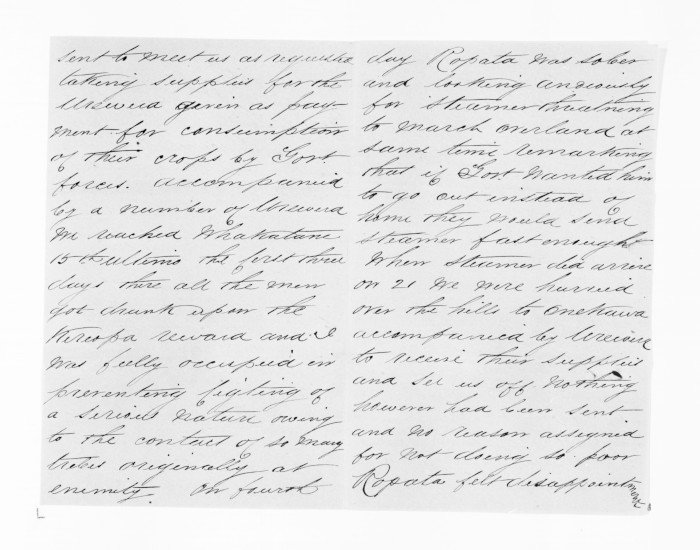 sent to meet us as requested
taking supplies for the
Urewera given as pay-
ment for consumption
of their crops by Govt
forces. accompanied
by a number of Urewera
we reached Whakatane
15th ultimo the first three
days there all the men
got drunk upon the
Kereopa reward and I
was fully occupied in
preventing figting of
a serious nature owing
to the contact of so many
tribes originally at
enemity. On fourth
day Ropata was sober
and looking anxiously
for steamer threatning
to march overland at
same time remarking
that if Govt wanted him
to go out instead of
home they would send
steamer fast enough
When steamer did arrive
on 21 we were hurried
over the hills to Onekawa
accompanied by Urewera
to receive their supplies
and see us off nothing
however had been sent
and no reason assigned
for not doing so. poor
Ropata felt disappointment